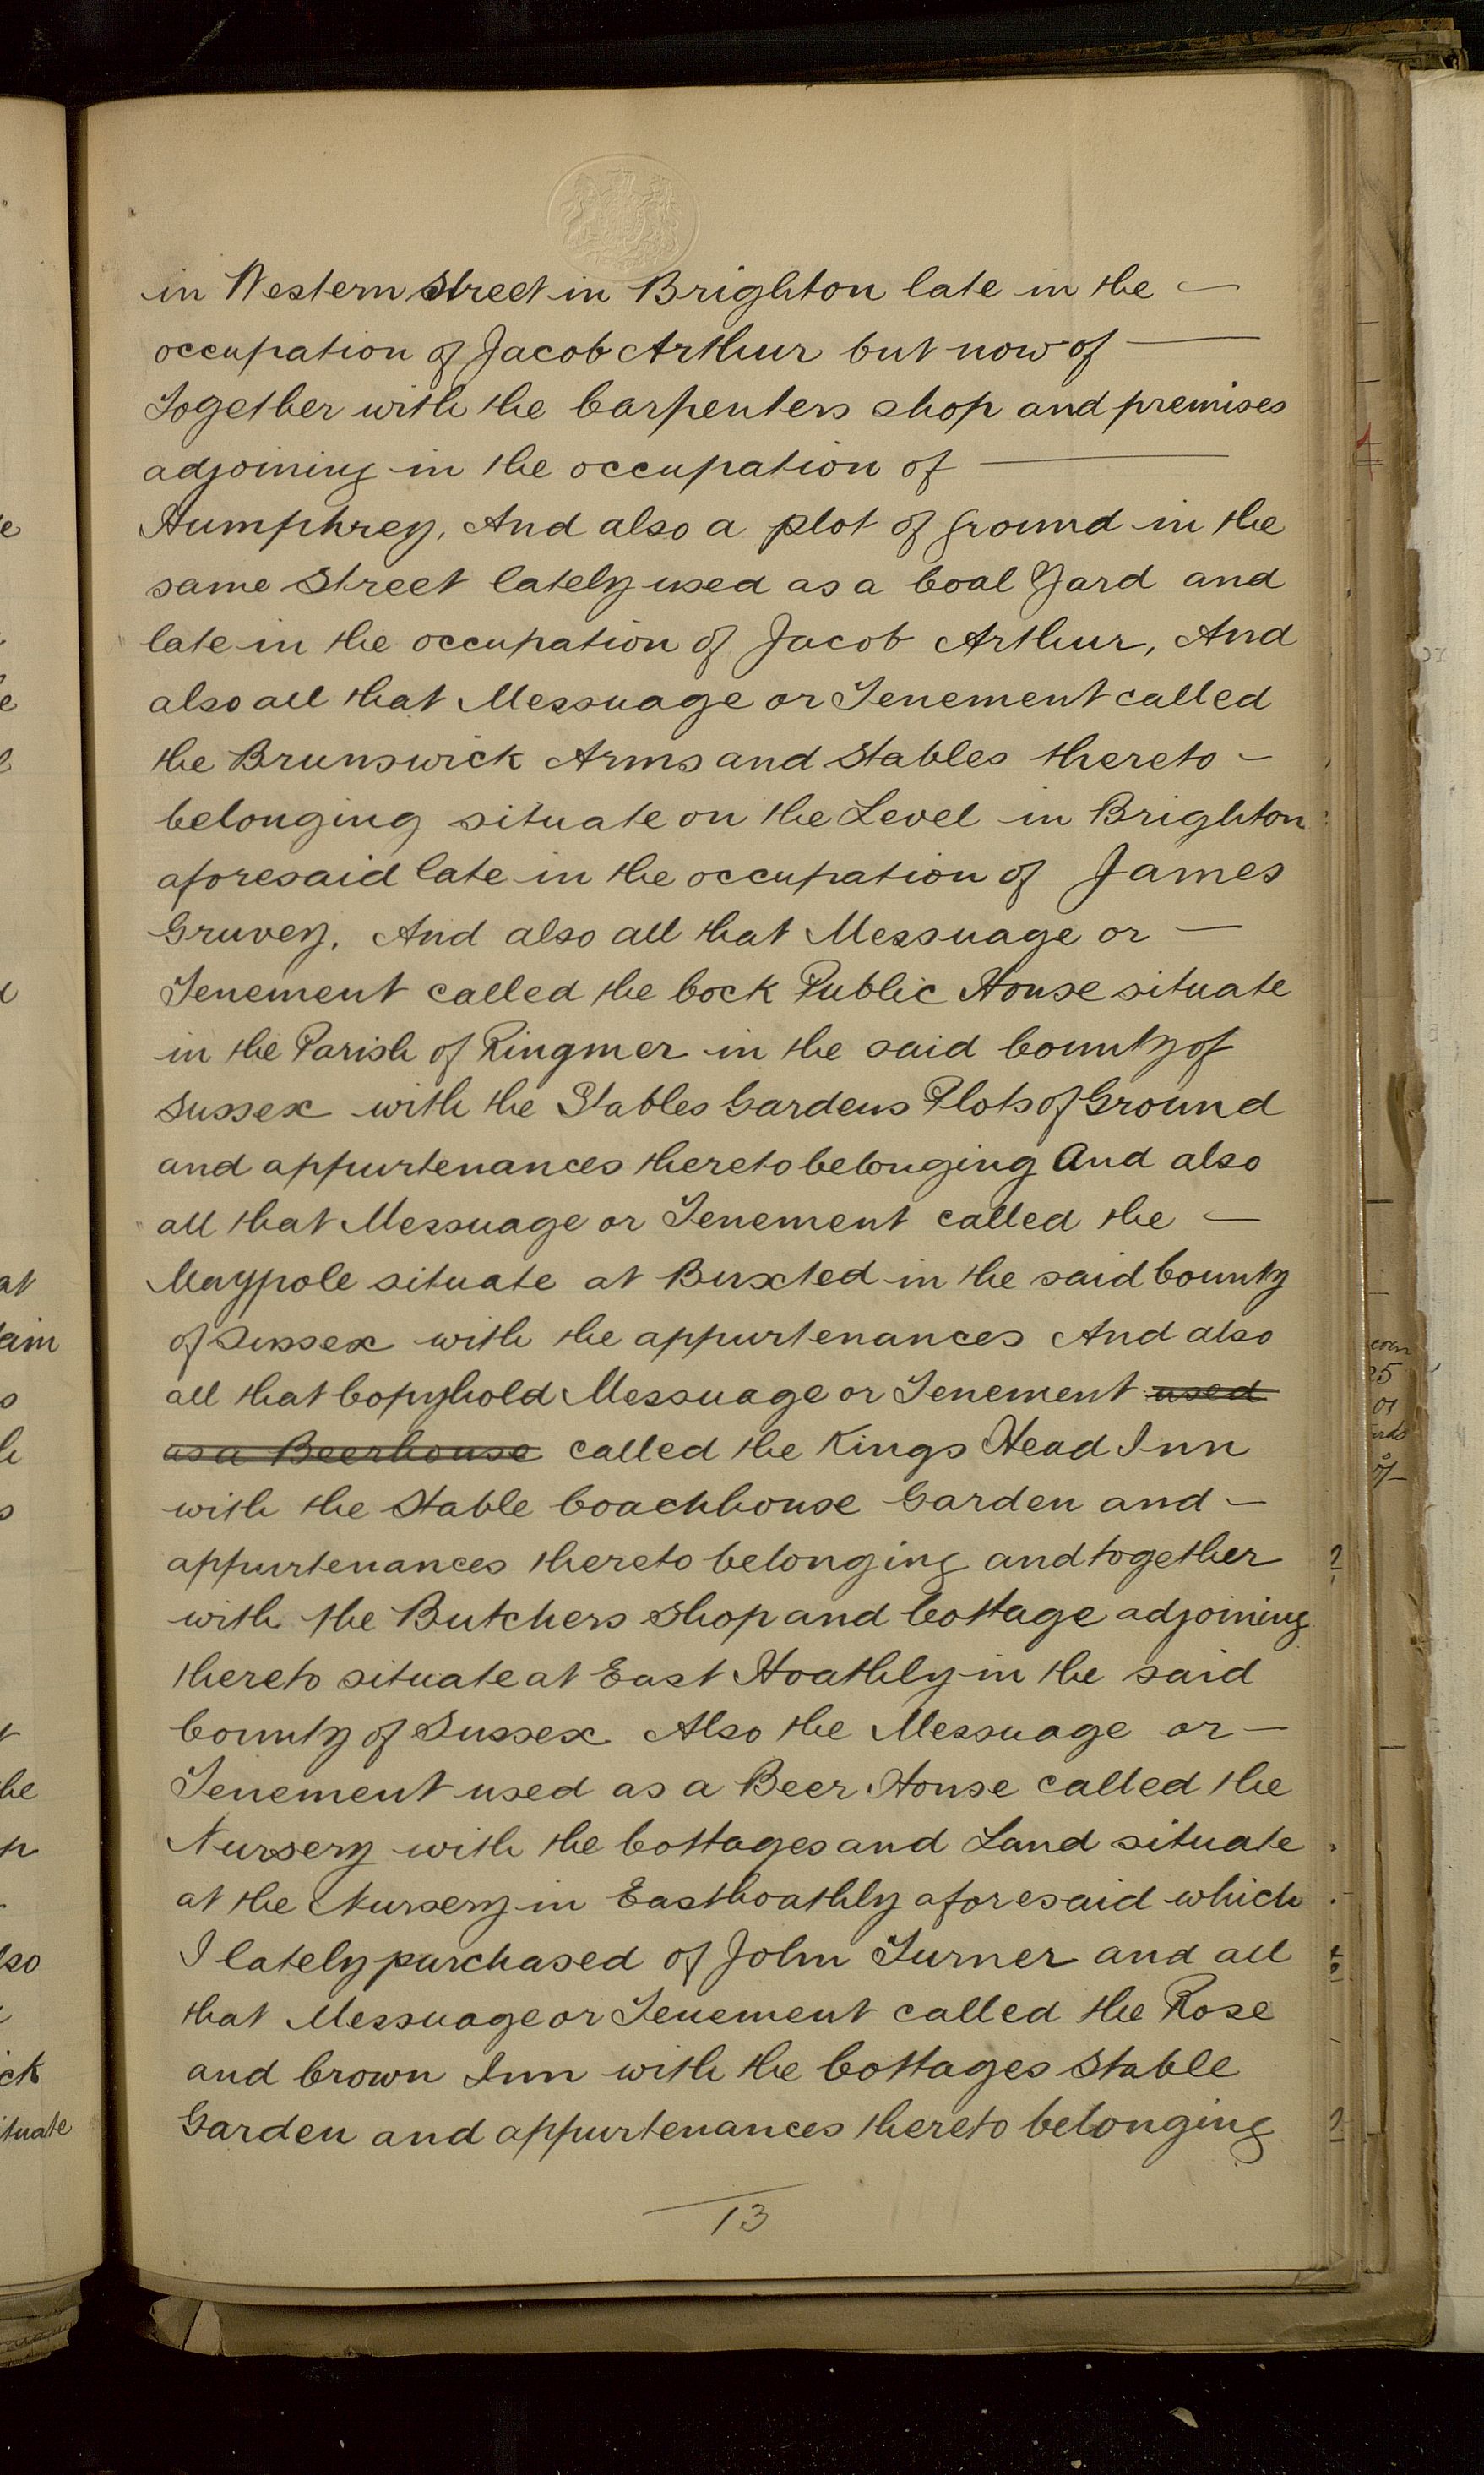 in Western Street in Brighton late in the —
occupation of Jacob Arthur but now of ———
Together with the Carpenters shop and premises
adjoining in the occupation of ———
Humphrey, And also a plot of ground in the
same Street lately used as a Coal Yard and
late in the occupation of Jacob Arthur, And
also all that Messuage or Tenement called
the Brunswick Arms and Stables thereto —
belonging situate on the Level in Brighton
aforesaid late in the occupation of James
Gruvey, And also all that Messuage or —
Tenement called the Cock Public House situate
in the Parish of Ringmer in the said County of
Sussex with the Stables Gardens Plots of Ground
and appurtenances thereto belonging And also
all that Messuage or Tenement called the —
Maypole situate at Buxted in the said County
of Sussex with the appurtenances And also
all that Copyhold Messuage or Tenement used
as a Beerhouse called the Kings Head Inn
with the Stable Coachhouse Garden and —
appurtenances thereto belonging and together
with the Butchers Shop and Cottage adjoining
thereto situate at East Hoathly in the said
County of Sussex Also the Messuage or —
Tenement used as a Beer House called the
Nursery with the Cottages and Land situate
at the Nursery in Easthoathly aforesaid which
I lately purchased of John Turner and all
that Messuage or Tenement called the Rose
and Crown Inn with the Cottages Stable
Garden and appurtenances thereto belonging
13